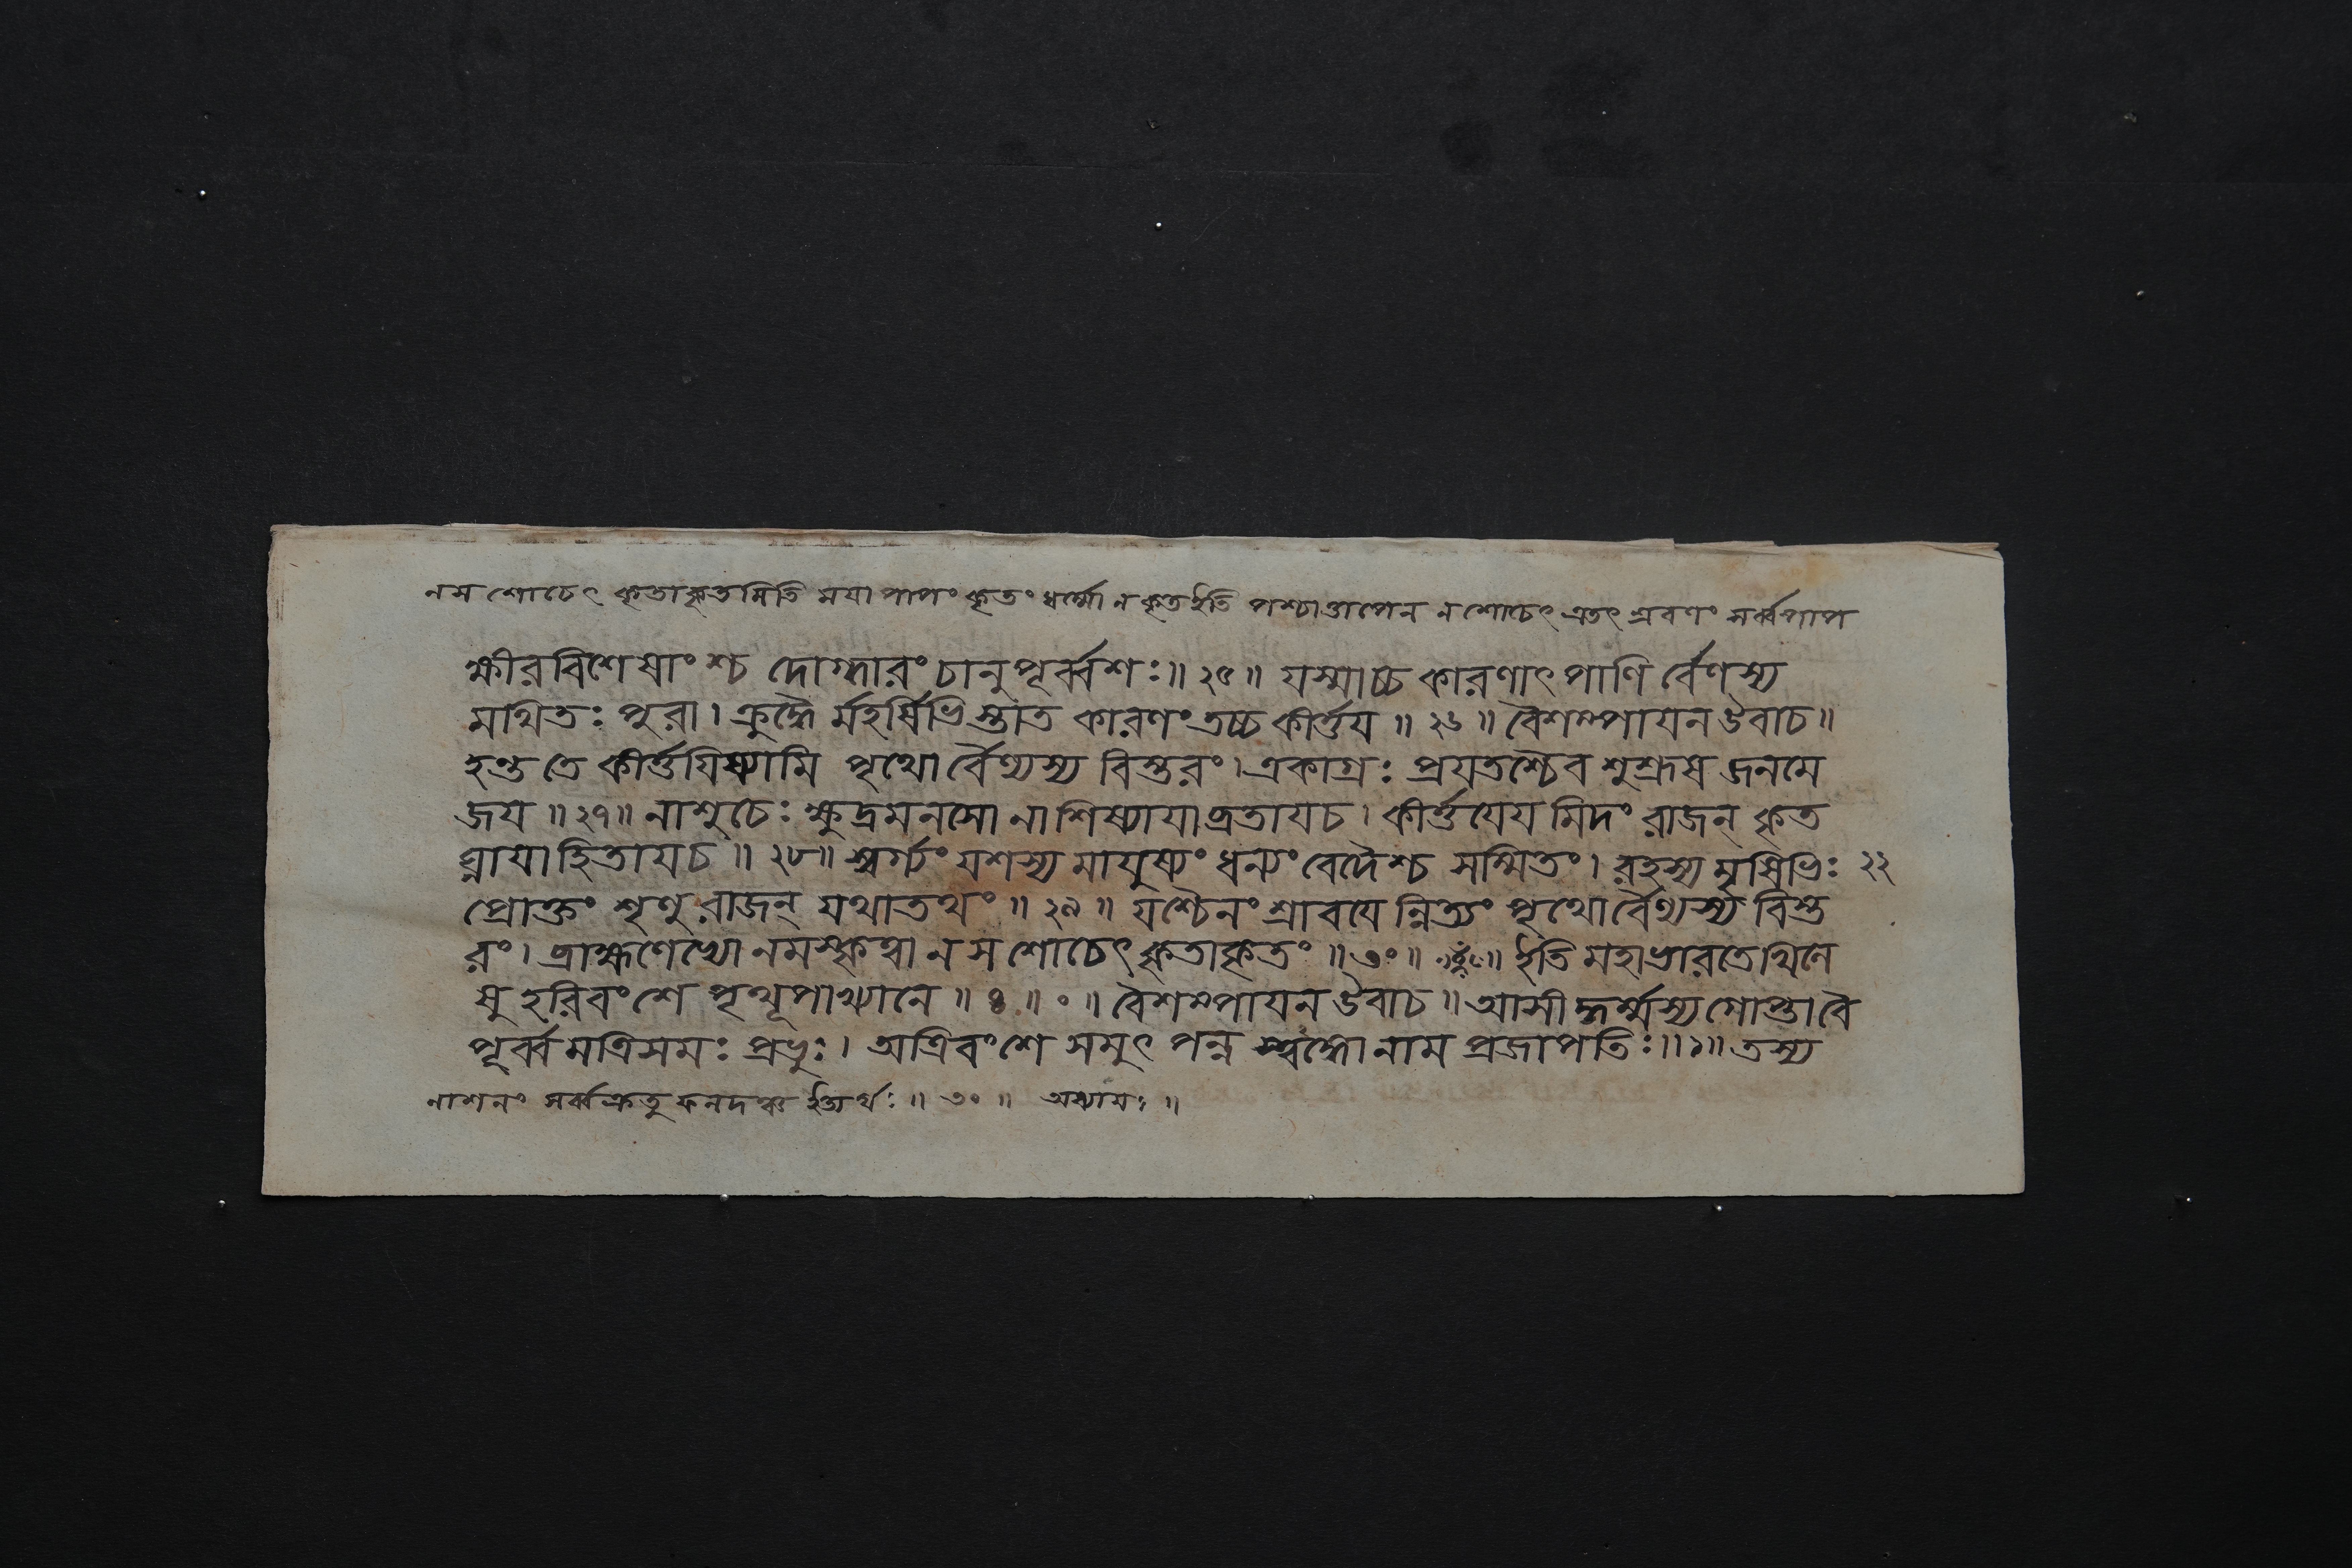 ন স শোচেৎ কৃতাকৃতমিতি ময়া পাপং কৃতং ধর্ম্মো ন কৃত ইতি পশ্চাত্তাপেন ন শোচেৎ এতৎ শ্রবণং সর্ব্বপাপ
ক্ষীরবিশেষাংশ্চ দোগ্ধারং চানুপূর্ব্বশঃ॥ ২৫॥ যস্মাচ্চ কারণাৎ পাণি র্বেণস্য
মথিতঃ পুরা। ক্রুদ্ধৈ র্মহর্ষিভিস্তাত কারণং তচ্চ কীর্ত্তয়॥ ২৬॥ বৈশম্পায়ন উবাচ॥
হন্ত তে কীর্ত্তয়িষ্যামি পৃথো র্বৈণ্যস্য বিস্তরং। একাগ্রঃ প্রযতশ্চৈব শুশ্রূষ জনমে
জয়॥ ২৭॥ নাশুচেঃ ক্ষুদ্রমনসো নাশিষ্যায়াব্রতায়চ। কীর্ত্তয়েয় মিদং রাজন্ কৃত
ঘ্নায়াহিতায়চ॥ ২৮॥ স্বর্গ্যং যশস্য মায়ুষ্যং ধন্যং বেদৈশ্চ সম্মিতং। রহস্য মৃষিভিঃ ২২
প্রোক্তং শৃণু রাজন্ যথাতথং॥ ২৯॥ যশ্চৈনং শ্রাবয়ে ন্নিত্যং পৃথোর্বৈণ্যস্য বিস্ত
রং। ব্রাহ্মণেভ্যো নমস্কৃত্বা ন স শোচেৎ কৃতাকৃতং॥ ৩০॥ ইতি মহাভারতে খিলে
ষু হরিবংশে পৃথূপাখ্যানে॥ ৪॥ ০॥ বৈশম্পায়ন উবাচ॥ আসী দ্ধর্ম্মস্য গোপ্তা বৈ
পূর্ব্ব মত্রিসমঃ প্রভুঃ। অত্রিবংশে সমুৎপন্ন স্ত্বঙ্গো নাম প্রজাপতিঃ॥ ১॥ তস্য
নাশনং সর্ব্বক্রতু ফলদঞ্চ ইত্যর্থঃ॥ ৩০॥ অধ্যায়ঃ॥